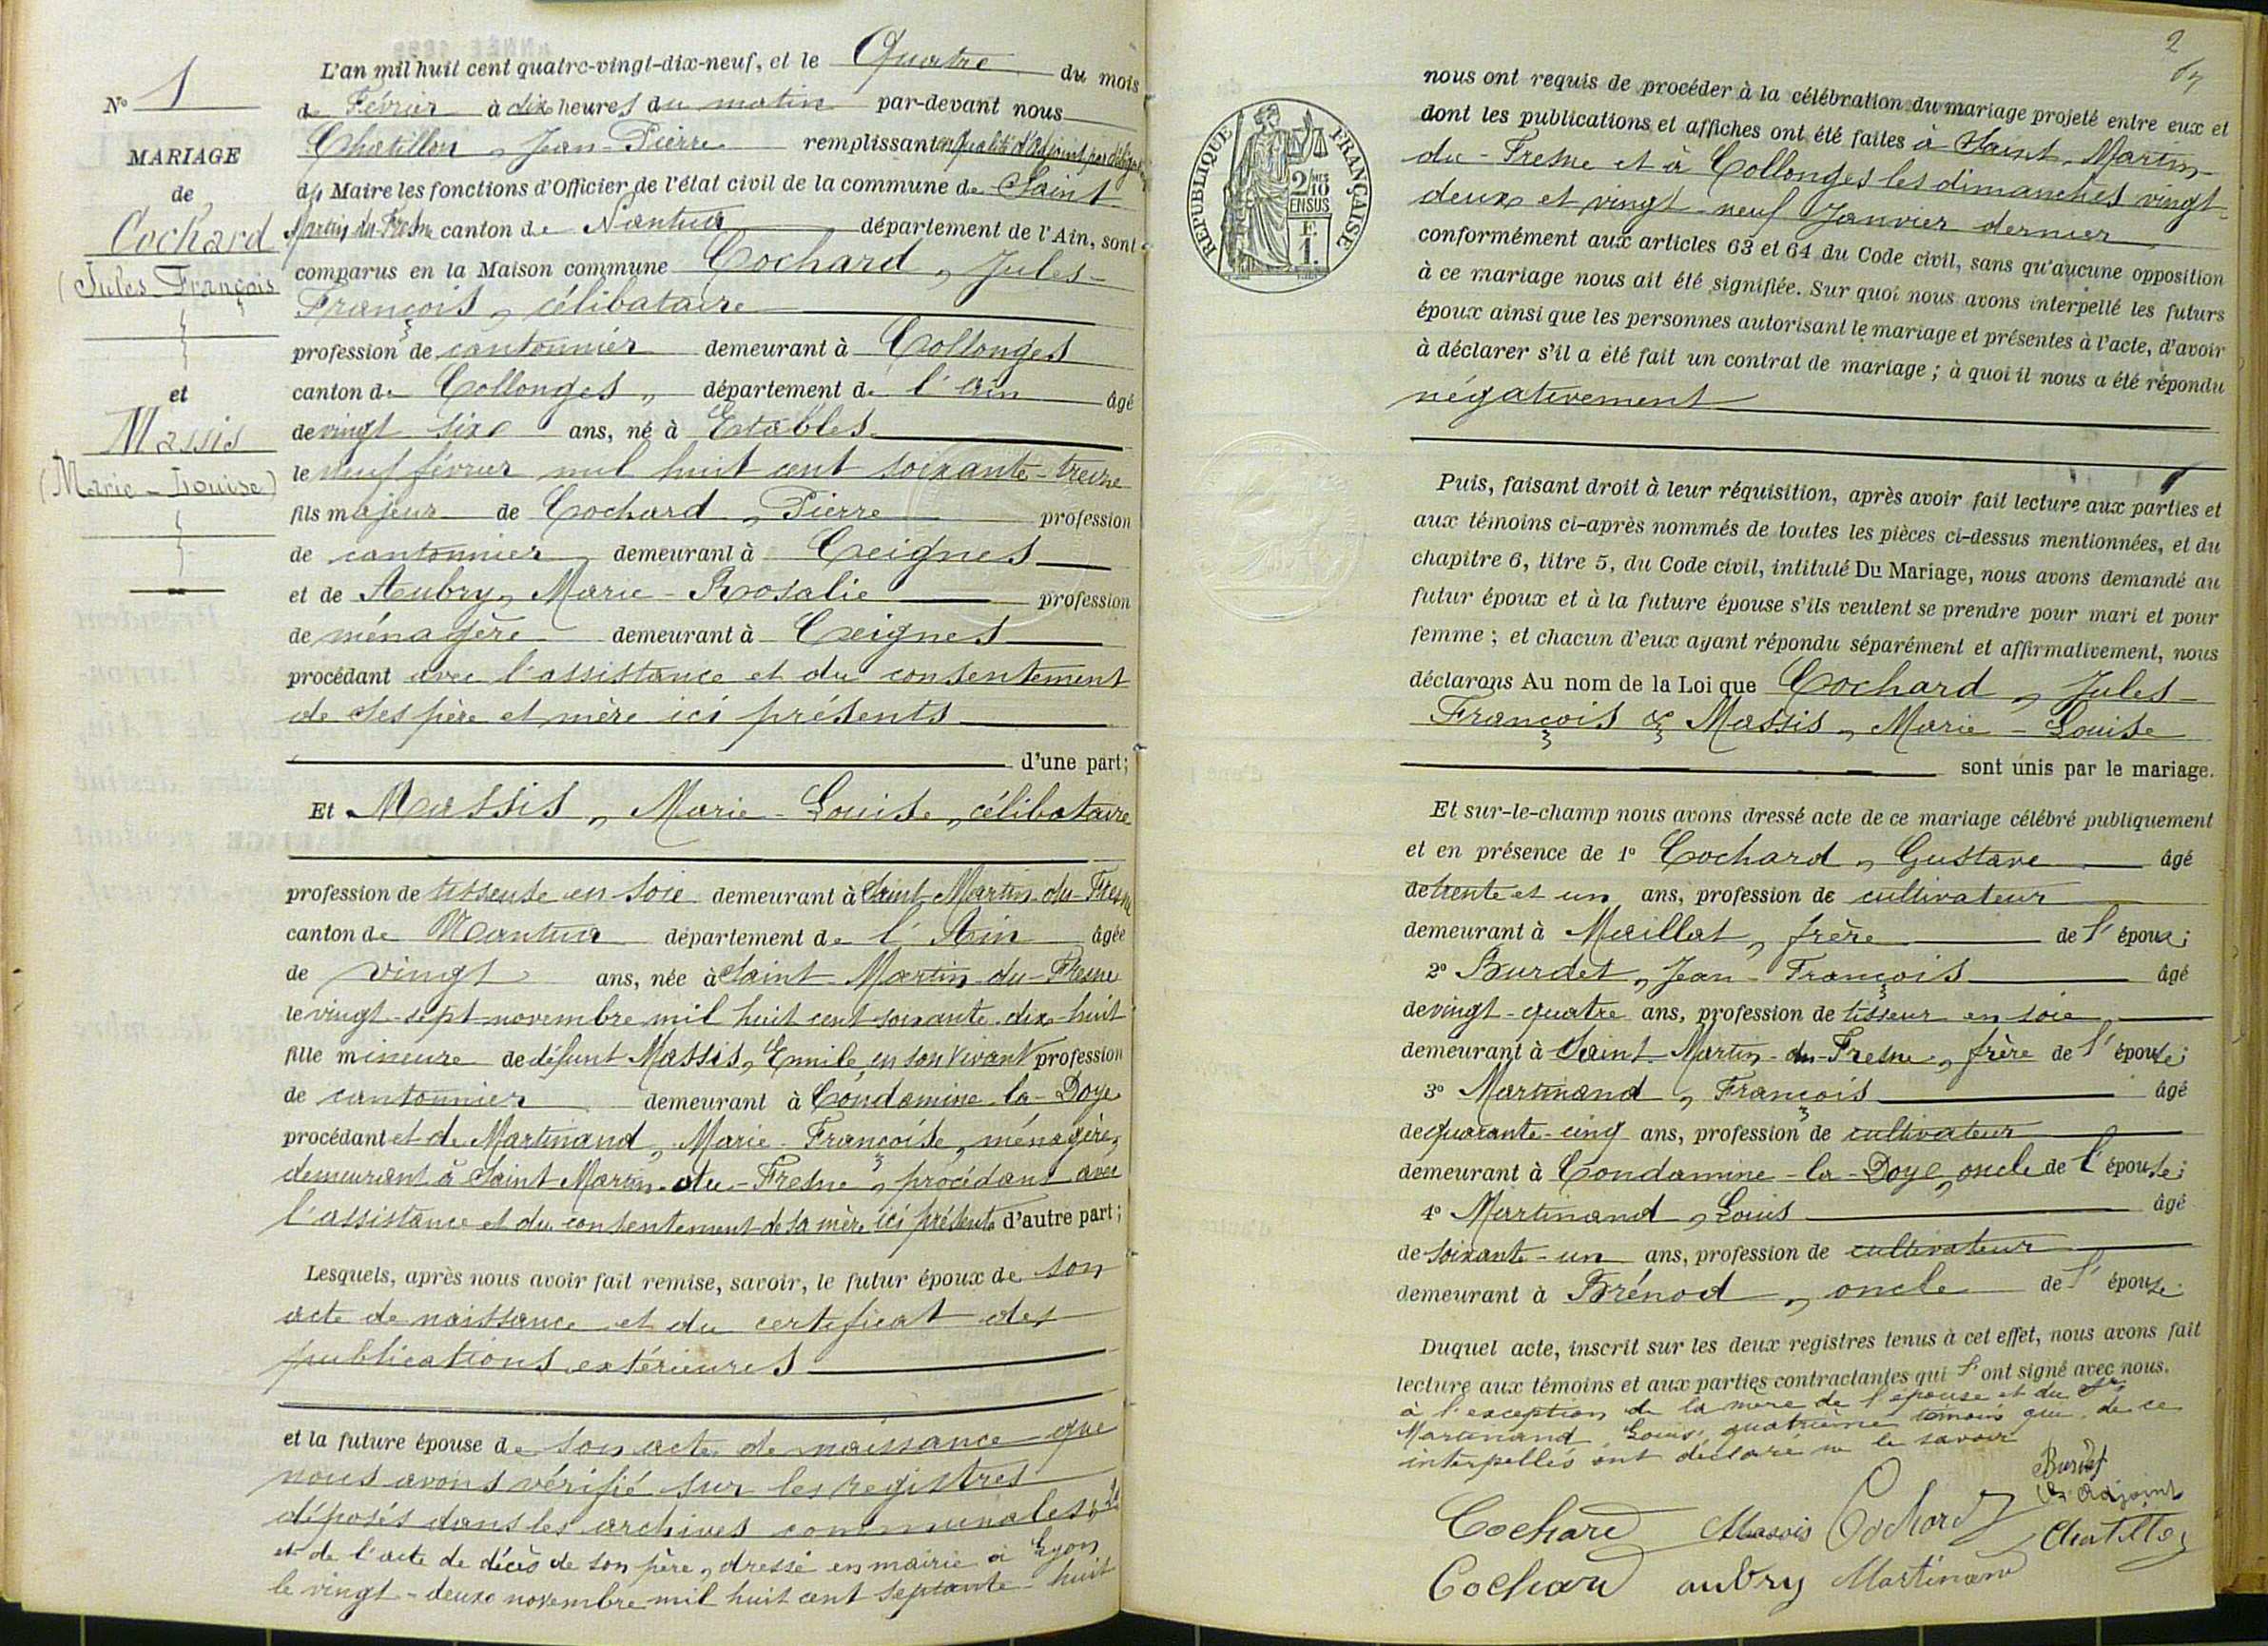 N° 1
MARIAGE
de
Cochard
(Jules François
et
Massis
(Marie-Louise)
L'an mil huit cent quatre-vingt-dix-neuf, et le Quatre du mois
de Février à dix heures du matin par-devant nous
Chatillon, Jean-Pierre remplissant en qualité d'adjoint par délégation
du Maire les fonctions d'Officier de l'état civil de la commune de Saint
Martin du Fresne canton de Nantua département de l'Ain, sont
comparus en la Maison commune Cochard, Jules-
François, célibataire
profession de cantonnier demeurant à Collonges
canton de Collonges, département de l'Ain âgé
de vingt six ans, né à Etables
le neuf février mil huit cent soixante-treize
fils majeur de Cochard, Pierre profession
de cantonnier, demeurant à Ceignes
et de Aubry, Marie-Rosalie profession
de ménagère demeurant à Ceignes
procédant avec l'assistance et du consentement
de ses père et mère ici présents
d'une part;
Et Massis, Marie-Louise, célibataire
profession de tisseuse en soie demeurant à Saint-Martin-du-Fresne
canton de Nantua département de l'Ain âgée
de vingt ans, née à Saint-Martin-du-Fresne
le vingt-sept novembre mil huit cent soixante-dix-huit
fille mineure de défunt Massis, Emile, en son vivant profession
de cantonnier demeurant à Condamine-la-Doye
procédant et de Martinand, Marie-Françoise, ménagère,
demeurant à Saint-Martin-du-Fresne, procédant avec
l'assistance et du consentement de sa mère ici présente d'autre part;
Lesquels, après nous avoir fait remise, savoir, le futur époux de son
acte de naissance et du certificat des
publications extérieures
et la future épouse de son acte de naissance que
nous avons vérifié sur les registres
déposés dans les archives communales,
et de l'acte de décès de son père, dressé en mairie à Lyon
le vingt-deux novembre mil huit cent septante-huit
2
RÉPUBLIQUE FRANÇAISE
2/10 EN SUS
F. 1.
nous ont requis de procéder à la célébration du mariage projeté entre eux et
dont les publications et affiches ont été faites à Saint-Martin-
du-Fresne et à Collonges les dimanches vingt-
deux et vingt-neuf Janvier dernier
conformément aux articles 63 et 64 du Code civil, sans qu'aucune opposition
à ce mariage nous ait été signifiée. Sur quoi nous avons interpellé les futurs
époux ainsi que les personnes autorisant le mariage et présentes à l'acte, d'avoir
à déclarer s'il a été fait un contrat de mariage; à quoi il nous a été répondu
négativement
Puis, faisant droit à leur réquisition, après avoir fait lecture aux parties et
aux témoins ci-après nommés de toutes les pièces ci-dessus mentionnées, et du
chapitre 6, titre 5, du Code civil, intitulé Du Mariage, nous avons demandé au
futur époux et à la future épouse s'ils veulent se prendre pour mari et pour
femme; et chacun d'eux ayant répondu séparément et affirmativement, nous
déclarons Au nom de la Loi que Cochard, Jules-
François & Massis, Marie-Louise
sont unis par le mariage.
Et sur-le-champ nous avons dressé acte de ce mariage célébré publiquement
et en présence de 1° Cochard, Gustave âgé
de trente et un ans, profession de cultivateur
demeurant à Maillat, frère de l'époux;
2° Burdet, Jean-François âgé
de vingt-quatre ans, profession de tisseur en soie
demeurant à Saint-Martin-du-Fresne, frère de l'épouse;
3° Martinand, François âgé
de quarante-cinq ans, profession de cultivateur
demeurant à Condamine-la-Doye, oncle de l'épouse;
4° Martinand, Louis âgé
de soixante-un ans, profession de cultivateur
demeurant à Brénod, oncle de l'épouse.
Duquel acte, inscrit sur les deux registres tenus à cet effet, nous avons fait
lecture aux témoins et aux parties contractantes qui l'ont signé avec nous.
à l'exception de la mère de l'épouse et du Sr
Martinand Louis, quatrième témoin qui de ce
interpellés ont déclaré ne le savoir
Cochard Massis Cochard Burdet
L'adjoint
Chatillon
Cochard Aubry Martinand